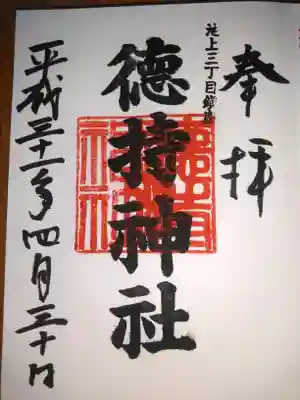 奉拝
池上三丁目鎮座
徳持神社
平成三十一年四月三十日